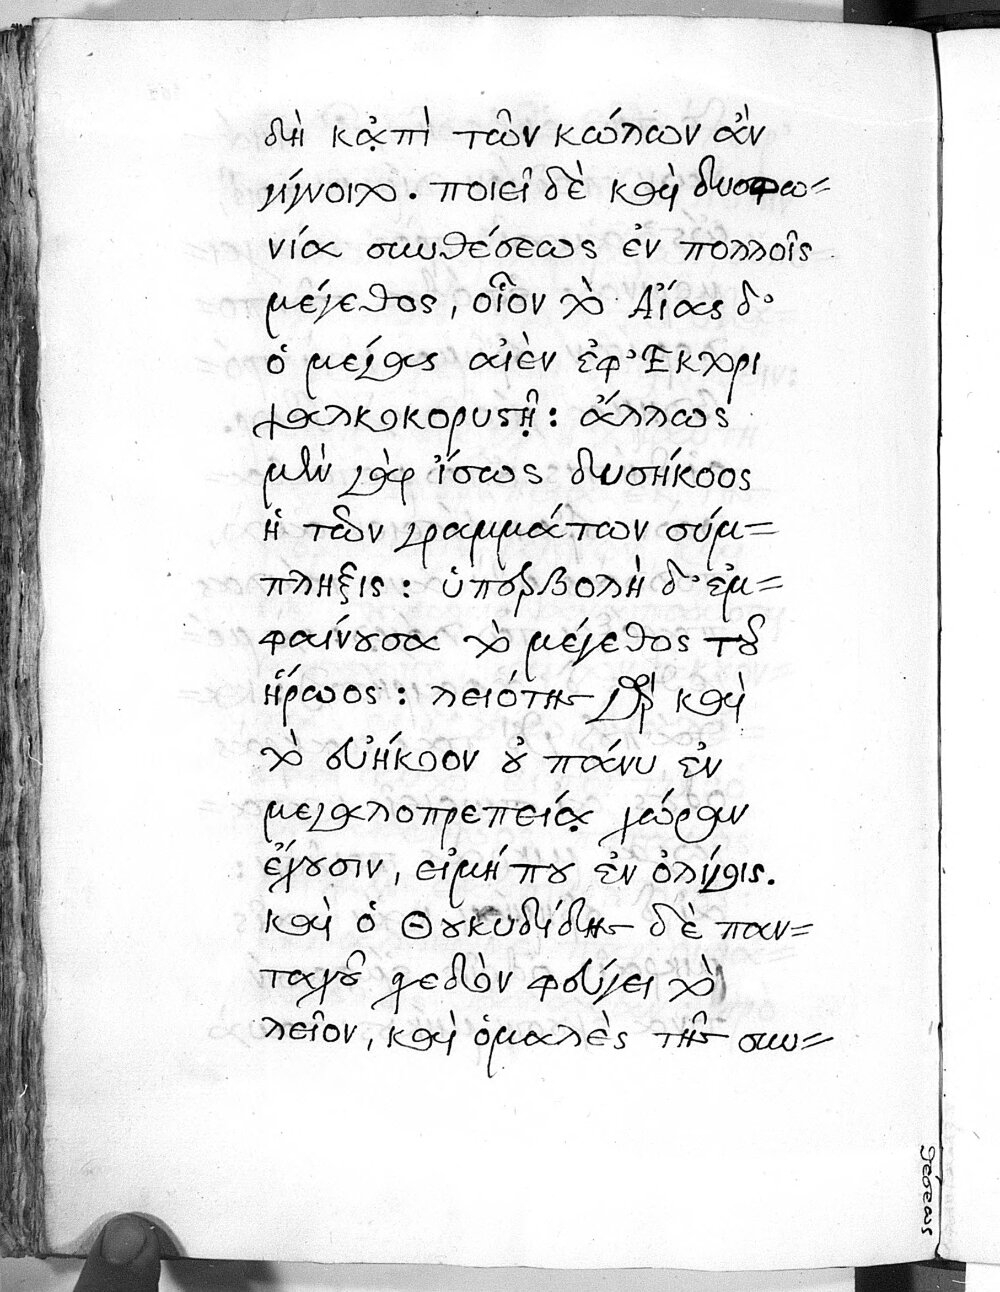 δὴ κᾀπὶ τῶν κώλων ἂν
γίγνοιτο. ποιεῖ δὲ καὶ δυσφω=
νία συνθέσεως ἐν πολλοῖς
μέγεθος, οἷον τὸ Αἴας δ'
ὁ μέγας αἰὲν ἐφ' Ἕκτορι
χαλκοκορυστῇ: ἄλλως
μὲν γὰρ ἴσως δυσήκοος
ἡ τῶν γραμμάτων σύμ=
πληξις: ὑπερβολὴ δ' ἐμ=
φαίνουσα τὸ μέγεθος τοῦ
ἥρωος: λειότης γὰρ καὶ
τὸ εὐήκοον οὐ πάνυ ἐν
μεγαλοπρεπείᾳ χώραν
ἔχουσιν, εἰμήπου ἐν ὀλίγοις.
καὶ ὁ Θουκυδίδης δὲ παν=
ταχοῦ σχεδὸν φεύγει τὸ
λεῖον, καὶ ὁμαλὲς τῆς συν=
θέσεως